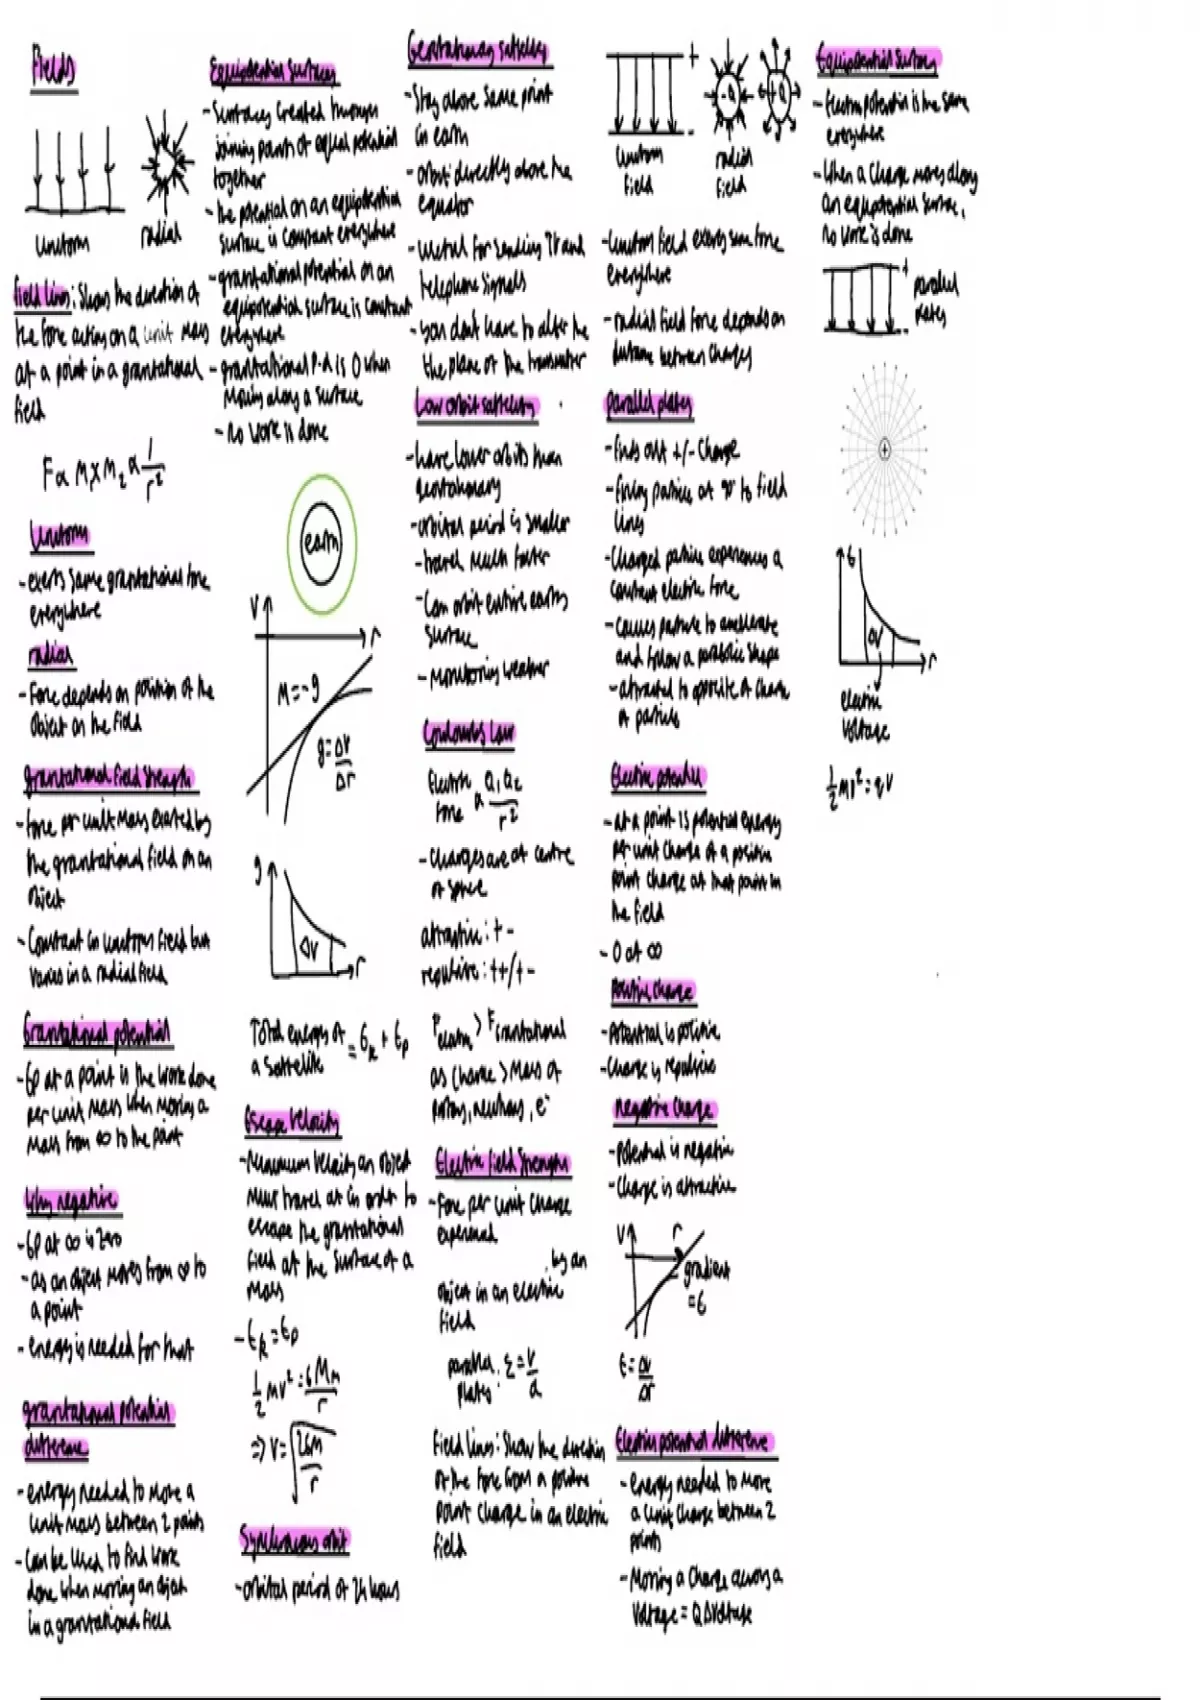 Fields
uniform
radial
field lines: Shows the direction of
the force acting on a unit mass
at a point in a gravitational
field
F ∝ M₁×M₂ ∝ 1/r²
Uniform
- exerts same gravitational force
everywhere
radial
- Force depends on position of the
object in the field
gravitational field strength
- force per unit mass exerted by
the gravitational field on an
object
- Constant in uniform field but
varies in a radial field
Gravitational potential
- Gp at a point is the work done
per unit mass when moving a
mass from ∞ to the point
Why negative
- Gp at ∞ is zero
- as an object moves from ∞ to
a point
- energy is needed for that
gravitational potential
difference
- energy needed to move a
unit mass between 2 points
- Can be used to find work
done when moving an object
in a gravitational field
Equipotential surfaces
- Surfaces created through
joining points of equal potential
together
- the potential on an equipotential
surface is constant everywhere
- gravitational potential on an
equipotential surface is constant
everywhere
- gravitational P.d is 0 when
moving along a surface
- no work is done
earth
V
r
M = -g
g = ΔV/Δr
g
ΔV
r
Total energy of
a Sattelite = Ek + Ep
Escape Velocity
- Minimum velocity an object
must travel at in order to
escape the gravitational
field at the surface of a
mass
- Ek = Ep
½ mv² = GMm/r
⇒ v = √(2GM/r)
Synchronous orbit
- orbital period of 24 hours
Geostationary satellites
- Stay above same point
in earth
- orbit directly above the
equator
- useful for sending TV and
telephone signals
- you don't have to alter the
the plane of the transmitter
Low orbit satellites
- have lower orbits than
geostationary
- orbital period is smaller
- travel much faster
- Can orbit entire earths
surface
- Monitoring weather
Coulombs Law
Electric
force ∝ Q₁Q₂/r²
- Charges are at centre
of sphere
attractive: + -
repulsive: ++/+ -
Felectric > Fgravitational
as charge > mass of
protons, neutrons, e⁻
Electric field strength
- Force per unit charge
experienced
by an
object in an electric
field
parallel
plates: E = V/d
Field lines: Show the direction
of the force from a positive
point charge in an electric
field
+
-
-Q
+Q
uniform
field
radial
field
- Uniform field exerts same force
everywhere
- radial field force depends on
distance between charges
parallel plates
- finds out +/- charge
- firing particle at 90° to field
lines
- Charged particle experiences a
constant electric force
- Causes particle to accelerate
and follow a parabolic shape
- attracted to opposite of charge
of particle
Electric potential
- at a point is potential energy
per unit charge of a positive
point charge at that point in
the field
- 0 at ∞
Positive charge
- Potential is positive
- Charge is repulsive
negative charge
- Potential is negative
- Charge is attractive
V
r
gradient
= E
E = ΔV/Δr
Electric potential difference
- energy needed to move
a unit charge between 2
points
- Moving a charge across a
voltage = QΔVoltage
Equipotential Surfaces
- Electric potential is the same
everywhere
- When a charge moves along
an equipotential surface,
no work is done
+
-
parallel
plates
+
E
ΔV
r
electric
Voltage
½ mv² = qV